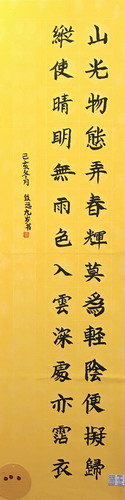 山光物態弄春輝莫為輕陰便擬歸
縱使晴明無雨色入雲深處亦霑衣
己亥冬月 九岁书